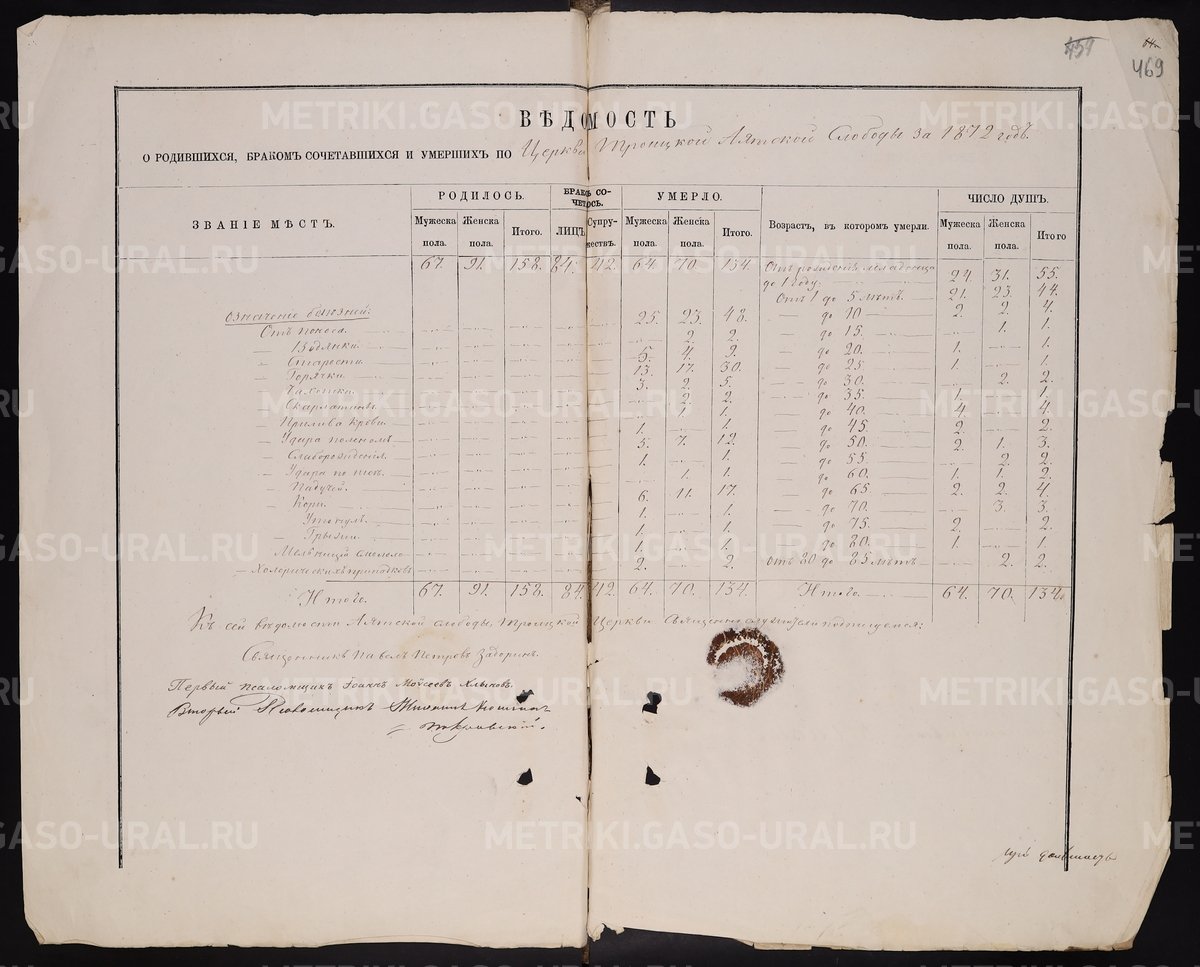 459
64
469
METRIKI.GASO-URAL.RU
ВѢДОМОСТЬ
О РОДИВШИХСЯ, БРАКОМЪ СОЧЕТАВШИХСЯ И УМЕРШИХЪ ПО Церкви Троицкой Аятской Слободы за 1872 годъ.
ЗВАНІЕ МѢСТЪ. РОДИЛОСЬ. БРАКОМЪ СОЧЕТАЛОСЬ. УМЕРЛО. Возрастъ, въ которомъ умерли. ЧИСЛО ДУШЪ.
Мужеска пола. Женска пола. Итого. ЛИЦЪ Супружествъ. Мужеска пола. Женска пола. Итого. Мужеска пола. Женска пола. Итого
67. 91. 158. 84. 42. 64. 70. 134. Отъ рожденія младенца до 1 году. 24. 31. 55.
Отъ 1 до 5 лѣтъ. 21. 23. 44.
Означеніе болѣзней:
Отъ поноса. 25. 23. 48. до 10 2. 2. 4.
Водянки 2. 2. до 15. 1. 1.
Старости. 5. 4. 9. до 20. 1. 1.
Горячки 13. 17. 30. до 25. 1. 1.
Чахотки 3. 2. 5. до 30. 2. 2.
Скарлатинъ 2. 2. до 35. 1. 1.
Прилива крови. 1. 1. до 40. 4. 4.
Удара 1. 1. до 45. 2. 2.
Слаборожденія. 5. 7. 12. до 50. 2. 1. 3.
Удара по 1. 1. до 55. 2. 2.
Падучей. 1. 1. до 60. 1. 1. 2.
Кори. 6. 11. 17. до 65 2. 2. 4.
Утонулъ. 1. 1. до 70. 3. 3.
Грыжи. 1. 1. до 75. 2. 2.
Мельницей 1. 1. до 80. 1. 1.
Холерическихъ припадковъ 2. 2. отъ 80 до 85 лѣтъ 2. 2.
Итого. 67. 91. 158. 84. 42. 64. 70. 134. Итого. 64. 70. 134.
Къ сей вѣдомости Аятской слободы, Троицкой Церкви Священно служители подписуемся:
Священникъ Павелъ Петровъ Задоринъ.
Первый псаломщикъ Іоаннъ Моѵсеевъ Хлыновъ.
Вторый Псаломщикъ